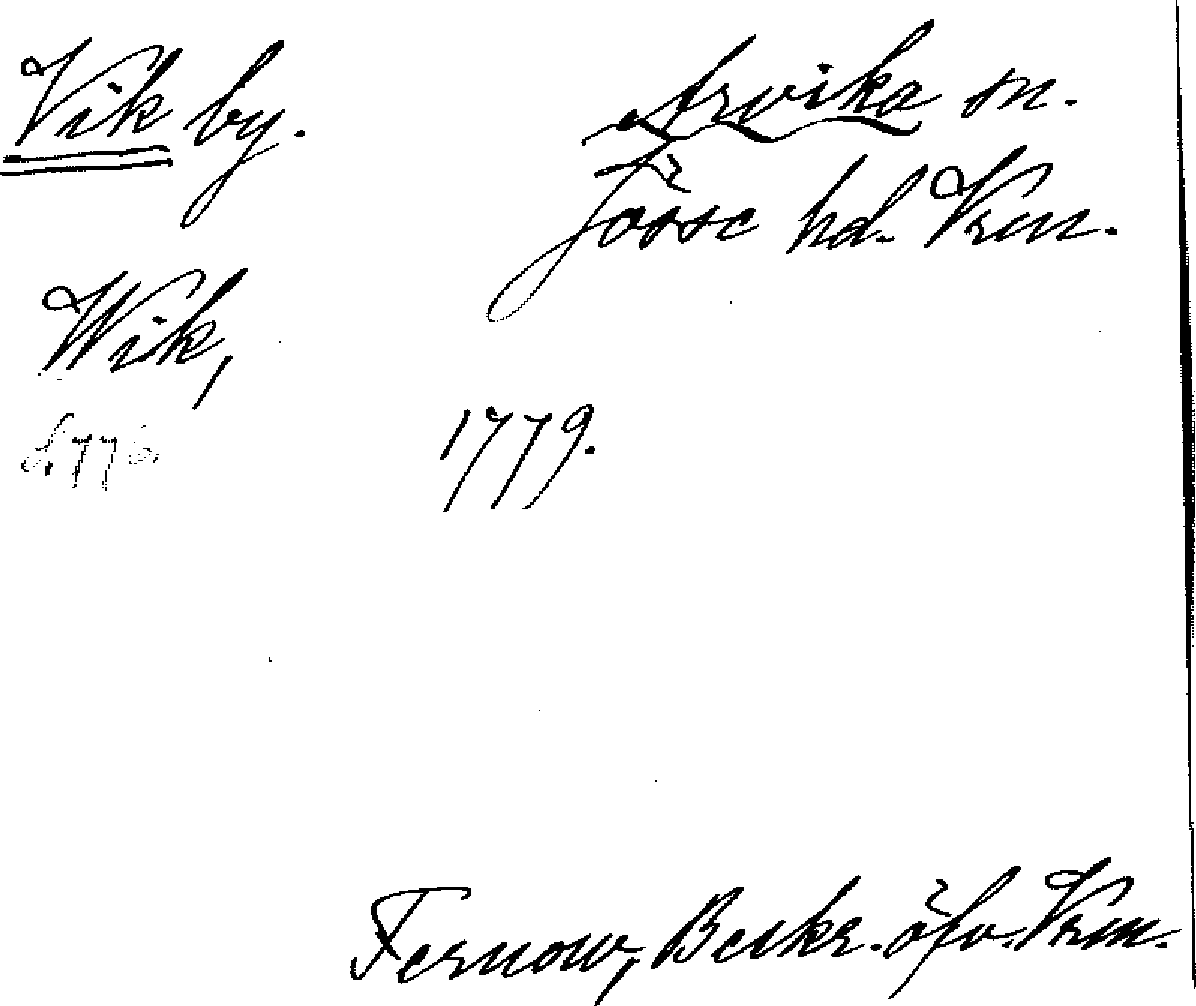 Vik by.
Arvika sn.
Jösse hd. Vrm.
Wik,
s. 776.
1779.
Fernow, Beskr. öfv. Vrm.